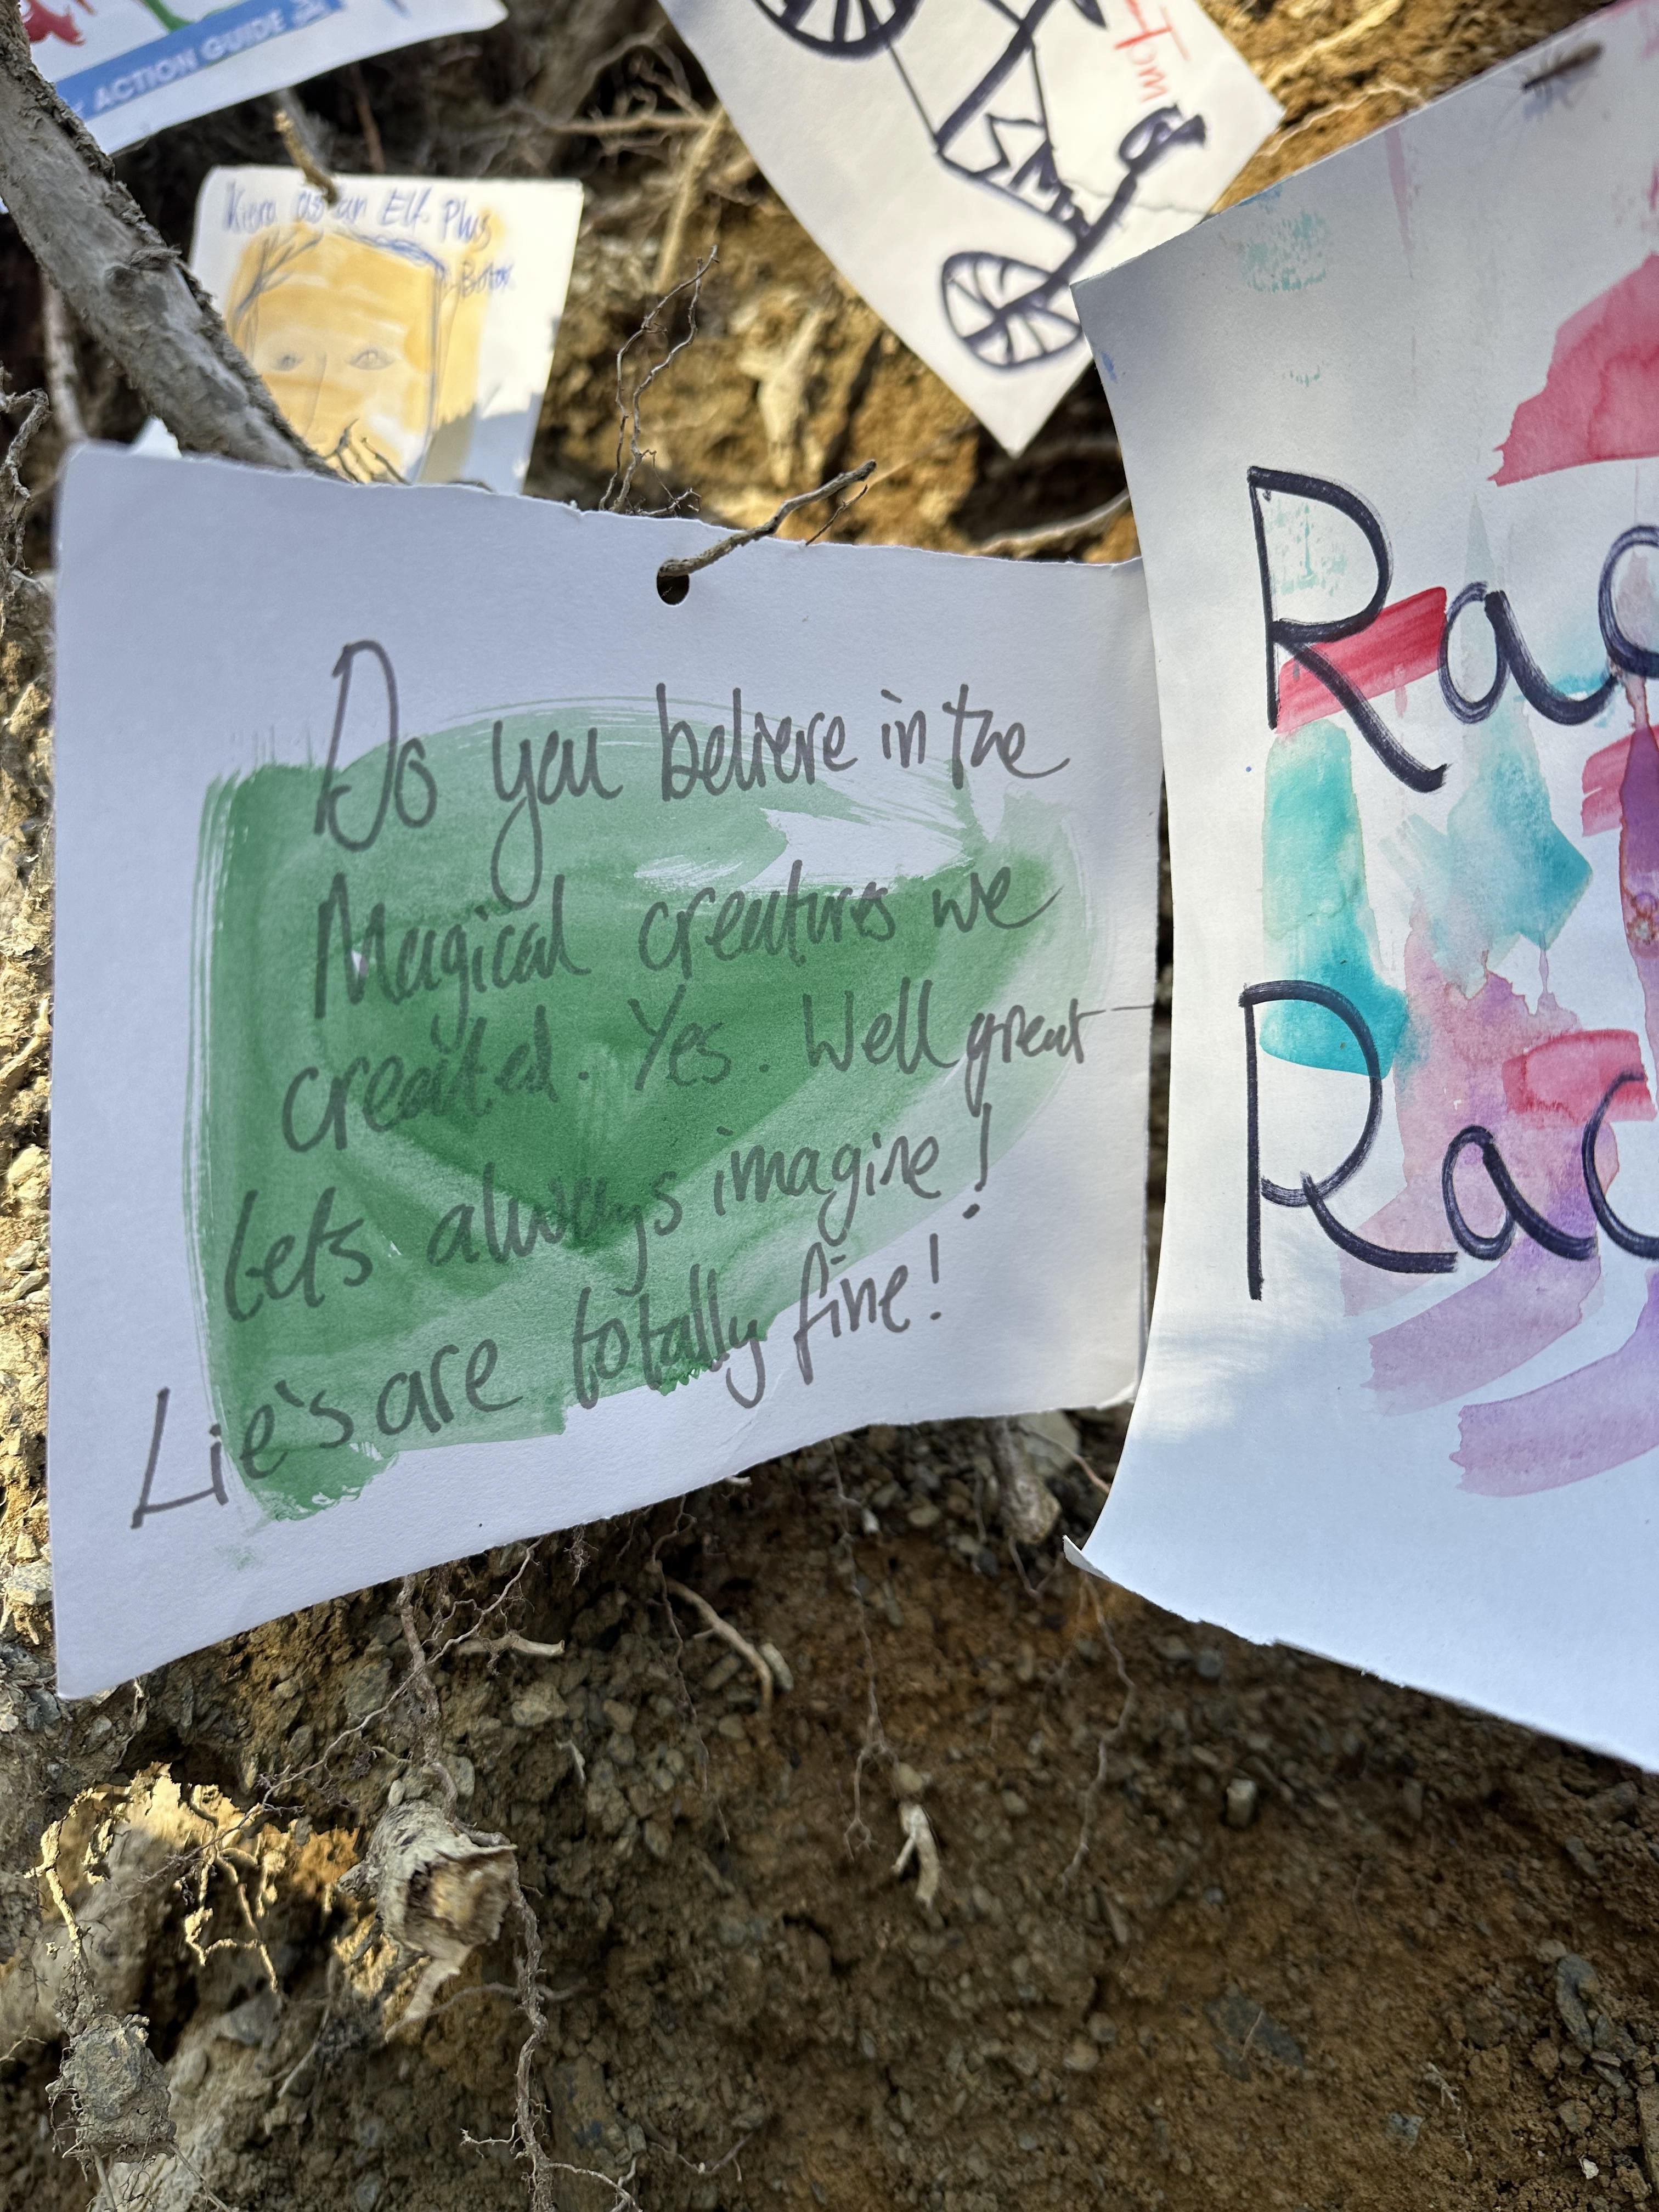 ACTION GUIDE
Kiera as an Elf Plus
Botox
Do you believe in the
Magical creatures we
created. Yes. Well great
Lets always imagine!
Lie's are totally fine!
Rac
Rac